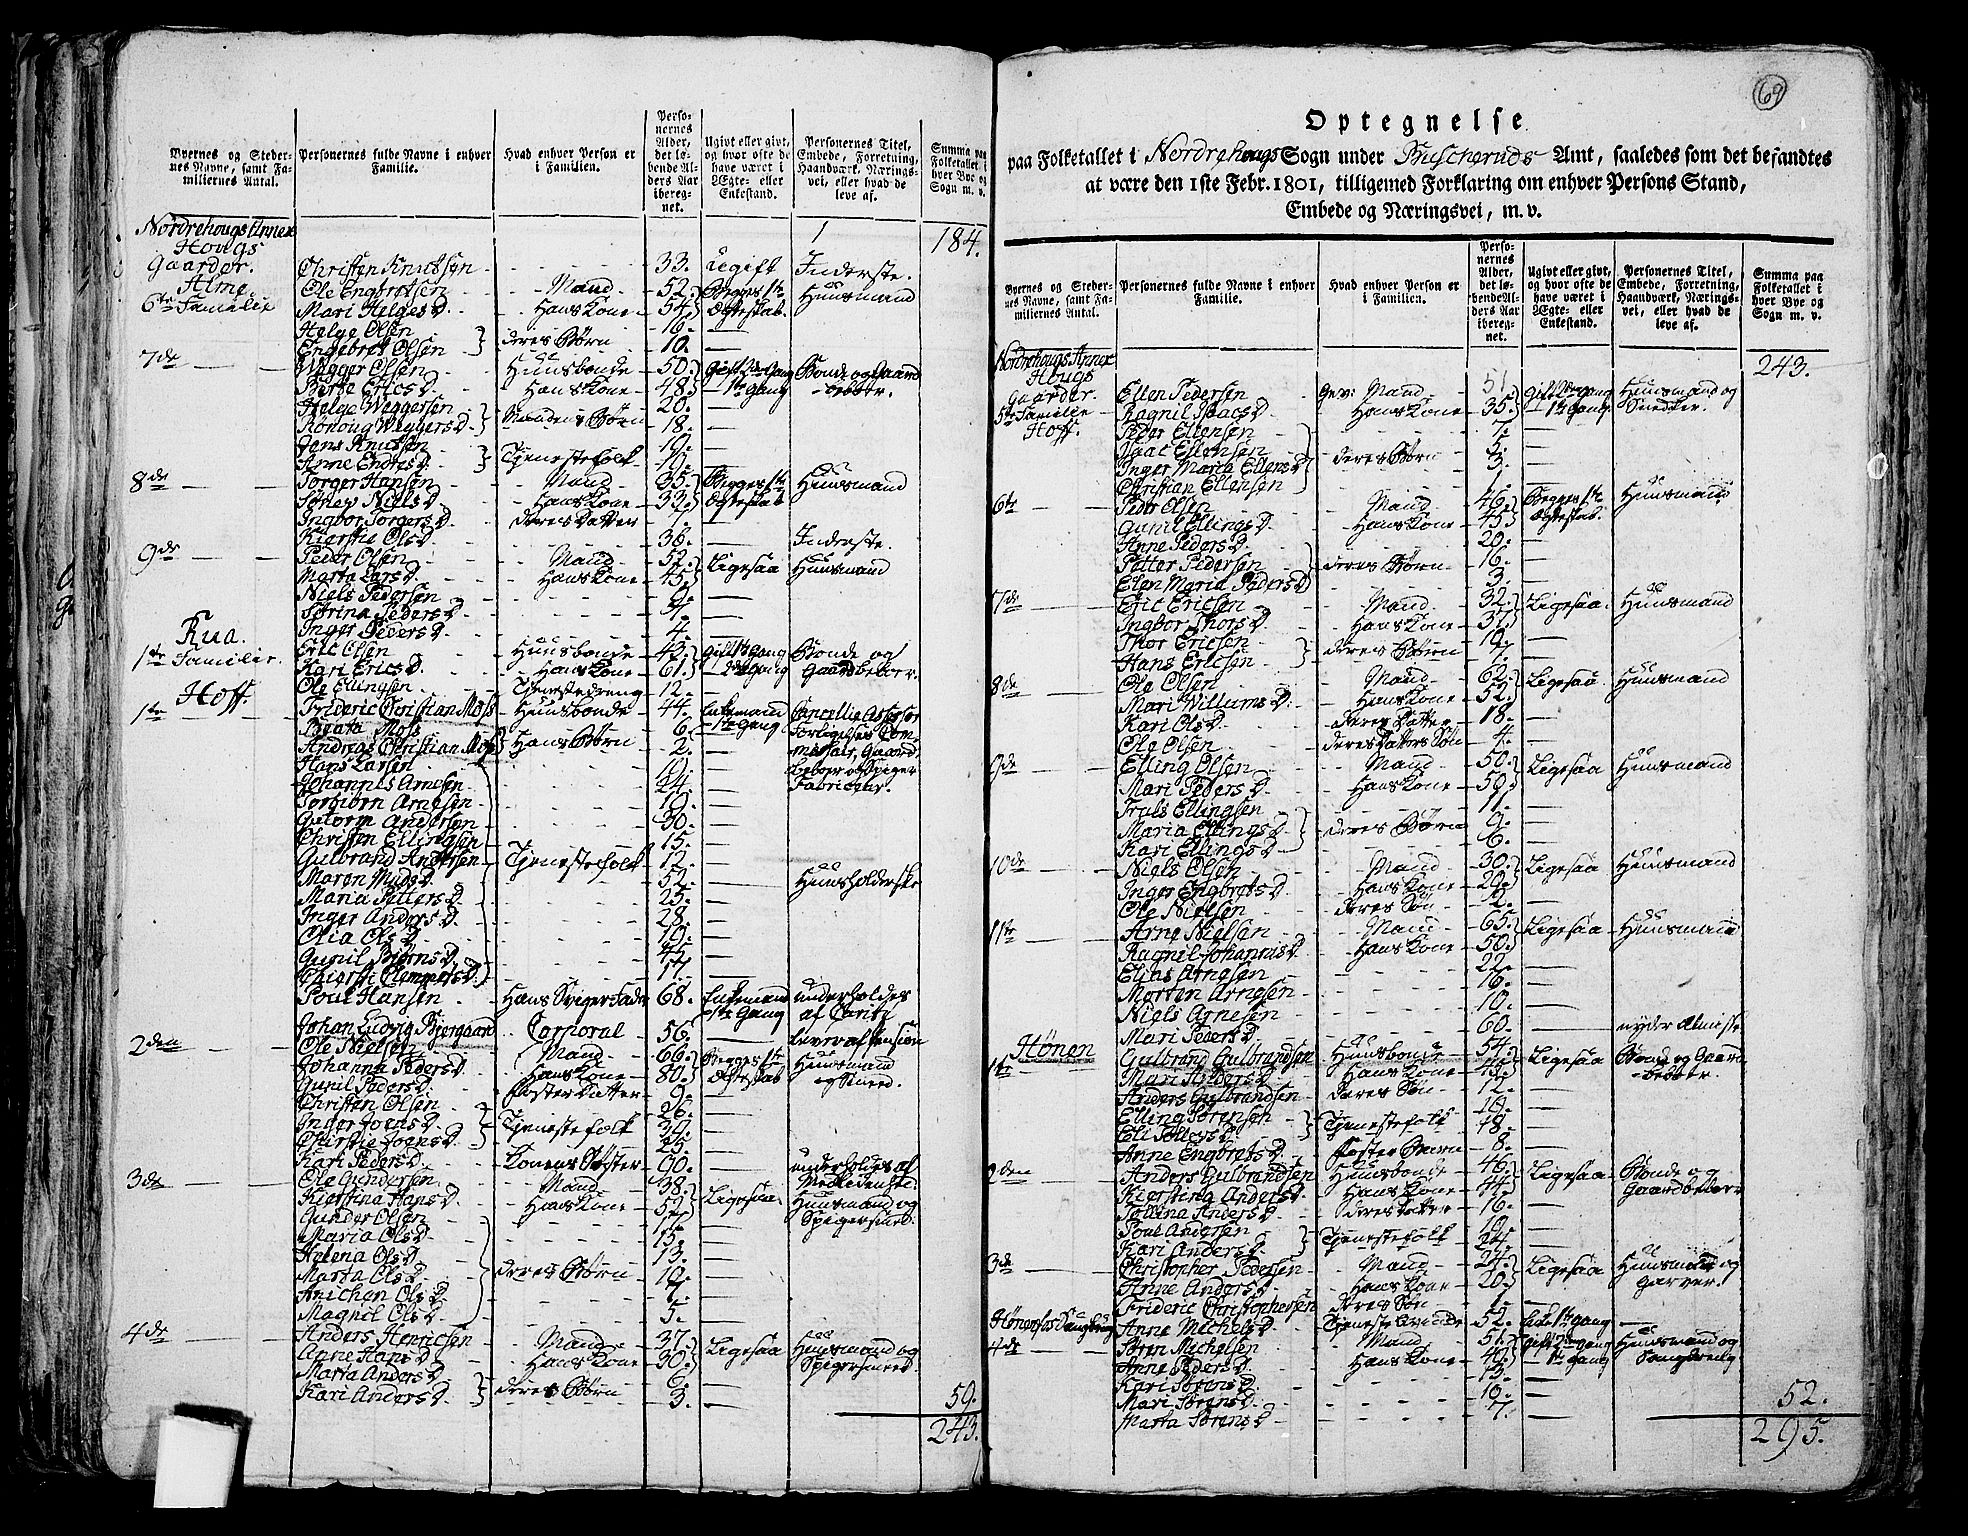 Byernes og Stedernes Navne, samt Familiernes Antal.
Personernes fulde Navne i enhver Familie.
Hvad enhver Person er i Familien.
Personernes Alder, det løbende Alders Aar iberegnet.
Ugivt eller givt, og hvor ofte de have været i Ægte- eller Enkestand.
Personernes Titel, Embede, Forretning, Haandværk, Næringsvei, eller hvad de leve af.
Summa paa Folketallet i hver Bye og Sogn m. v.
Nordrehougs Annex 184.
Hougs
Gaarder. Christen Knutsen 33. Ugift Inderste.
Alme. Ole Engbretsen Mand 52. Begges 1te Huusmand
6te Familie Mari Helges D. Hans Kone 54. Ægteskab
Helge Olsen 16.
Engebret Olsen deres Børn 10.
7de Wegger Olsen Huusbonde 50. Gift 2den Gang Bonde og Gaard
Berte Erics D. Hans Kone 48. 1te Gang beboer.
Helge Weggersen 20.
Ronoug Weggers D. Mandens Børn 18.
Jens Knutsen 19.
Anne Endres D. Tjenestefolk 19.
8de Torger Hansen Mand 35. Begges 1te Huusmand
Niels D. Hans Kone 33. Ægteskab
Ingbor Torgers D. deres Datter 1.
Kierstie Ols D. 36. Inderste.
9de Peder Olsen Mand 52. Ligesaa Huusmand
Marta Lars D. Hans Kone 45.
Niels Pedersen 9.
Peders D.
Rua. Inger Peders D. 4.
1te Familie. Eric Olsen Huusbonde 43. Gift 1te Gang Bonde og
Kari Erics D. Hans Kone 61. 2den Gang Gaardbeboer.
Hoff. Ole Ellingsen Tjenestedreng 12.
1te Frideric Christian Moss Huusbonde 44. Enkemand Cancellie Assessor
Beata Moss 6. 1te Gang Forligelses Com
Andreas Christian Moss Hans Børn 2. missair, Gaard
Hans Larsen 19. beboer og Spiger
Johannes Arnesen 24. Fabriceur.
Torbiørn Arnesen 19.
Gutorm Andersen 30.
Christen Ellingsen 15.
Gulbrand Andersen Tjenestefolk 12.
Maren D. 52. Huusholderske
Maria Petters D. 25.
Inger Anders D. 28.
Olia Ols D. 19.
Gunil Biørns D.
Chiersti Clemmets D. 17.
Poul Hansen Hans Svigerfader 68. Enkemand underholdes
1te Gang af Carité
Johan Ludvig Bjergaard Corporal 56. lever af Pension
2den Ole Nielsen Mand 66. Begges 1te Huusmand
Johanna Peders D. Hans Kone 80. Ægteskab og Smed.
Gunil Peders D. Foster Datter 9.
Christen Olsen 26.
Inger Joens D. Tjenestefolk 30.
Chirstie Joens D. 25.
Kari Peders D. Konens Søster 90. underholdes af
3de Ole Gundersen Mand 38. Meddeelende.
Kierstina Hans D. Hans Kone 52. Ligesaa. Huusmand og
Gunder Olsen 17. Spigersmed.
Maria Ols D. 15.
Helena Ols D. 13.
Marta Ols D. deres Børn 10.
Anichen Ols D. 7.
Magnil Ols D. 5.
4de Anders Henricsen Mand 37. Ligesaa Huusmand og
Anne Hans D. Hans Kone 30. Spigersmed.
Marta Anders D. 6.
Kari Anders D. deres Børn 3.
59.
243.
69
Optegnelse
paa Folketallet i Nordrehougs Sogn under Buscheruds Amt, saaledes som det befandtes
at være den 1ste Febr. 1801, tilligemed Forklaring om enhver Persons Stand,
Embede og Næringsvei, m. v.
Byernes og Stedernes Navne, samt Familiernes Antal.
Personernes fulde Navne i enhver Familie.
Hvad enhver Person er i Familien.
Personernes Alder, det løbende Alders Aar iberegnet.
Ugivt eller givt, og hvor ofte de have været i Ægte- eller Enkestand.
Personernes Titel, Embede, Forretning, Haandværk, Næringsvei, eller hvad de leve af.
Summa paa Folketallet i hver Bye og Sogn m. v.
Nordrehougs Annex 243.
Hougs
Gaarder. Ellen Pedersen Gev: Mand 51. Gift 2den Gang Huusmand og
5te Familie Ragnil Isaacs D. Hans Kone 35. 1te Gang Snedker.
Hoff. Peder Ellensen 7.
Isaac Ellensen 5.
Inger Marta Ellens D deres Børn 3.
Christian Ellensen 1.
6te Peder Olsen Mand 46. Begges 1te Huusmand
Gunil Ellings D. Hans Kone 45. Ægteskab.
Anne Peders D. 20.
Petter Pedersen deres Børn 16.
Elen Maria Peders D 3.
7de Eric Ericsen Mand 32. Ligesaa Huusmand
Ingbor Thors D. Hans Kone 37.
Thor Ericsen 10.
Hans Ericsen deres Børn
8de Ole Olsen Mand 62. Ligesaa Huusmand
Mari Willums D. Hans Kone 52.
Kari Ols D. deres Datter 18.
Ole Olsen deres Datters Søn 4.
9de Elling Olsen Mand 50. Ligesaa Huusmand
Mari Peders D. Hans Kone 50.
Truls Ellingsen 11.
Maria Ellings D. deres Børn 9.
Kari Ellings D. 6.
10de Niels Olsen Mand 30. Ligesaa Huusmand
Inger Engbrets D. Hans Kone 29.
Ole Nielsen deres Søn 2.
11te Arne Nielsen Mand 65. Ligesaa Huusmand
Ragnil Johannis D. Hans Kone 50.
Elias Arnesen 22.
Morten Arnesen 16.
Niels Arnesen 10.
Hønen Mari Peders D. 60. nyder Almisse
1te Gulbrand Gulbrandsen Huusbonde 54. Ligesaa Bonde og Gaard
Mari Anders D. Hans Kone 43. beboer.
Anders Gulbrandsen deres Søn 12.
Elling Sørensen 18.
Eli D. Tjenestefolk 48.
Anne Engbrets D. Foster Barn 8.
2den Anders Gulbrandsen Huusbonde 46. Ligesaa Bonde og
Kierstina Anders D. Hans Kone 44. Gaardbeboer
Anders D. deres Datter 16.
Poul Andersen 19.
Kari Anders D. Tjenestefolk 24.
3de Christopher Pedersen Mand 24. Ligesaa Huusmand og
Anne Anders D. Hans Kone 20. Garver.
Frideric Christophersen deres Søn 1.
Hønenfos Saugbrug Anne Michels D. Tjeneste Qvinde 52. Enke 1te Gang
4de Søren Michelsen Mand 51. Gift 2den Gang Huusmand og
Anne Peders D. Hans Kone 40. 1te Gang
Kari Sørens D. 13.
Mari Sørens D. 10. 52.
Marta Sørens D 7. 295.